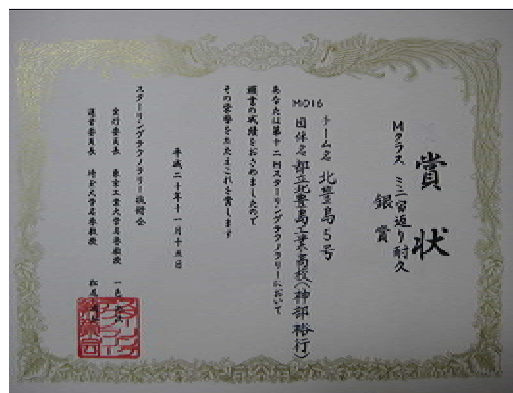 賞状
Mクラス ミニ宙返り耐久
銀賞
チーム名 北豊島5号
M016
団体名 都立北豊島工業高校(神部裕行)
あなたは第十二回スターリングテクノラリーにおいて
頭書の成績をおさめましたので
その栄誉をたたえこれを賞します
平成二十年十一月十五日
スターリングテクノラリー技術会
実行委員長 東京工業大学名誉教授 一色
運営委員長 埼玉大学名誉教授 松尾